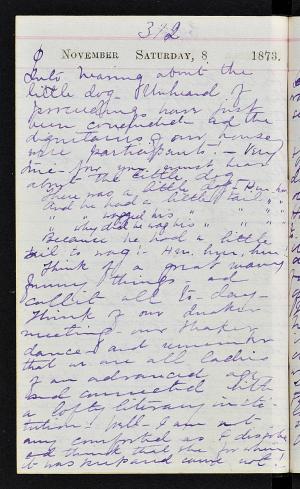 312
November Saturday, 8 1873.
hearing about the
little dog - Unheard of
proceedings have just
been and the
dignitaries of our house
were participants! - Very
for you must hear
about the little dog -
There was a little dog - Hm. hm
And he had a little tail " "
" " wagged his " " " "
" why did he wag his " " " "
Because he had a little
tail to wag! - Hm. hm, hm
Think of a great many
funny things we
all to-day -
Think of our quaker
meeting, our Shaker
dance, and remember
that we are all ladies
of an advanced age
and connected with
a lofty literary insti-
tution! Well - I am not
any comforted as I
and think that she for whom
it was prepared came not!